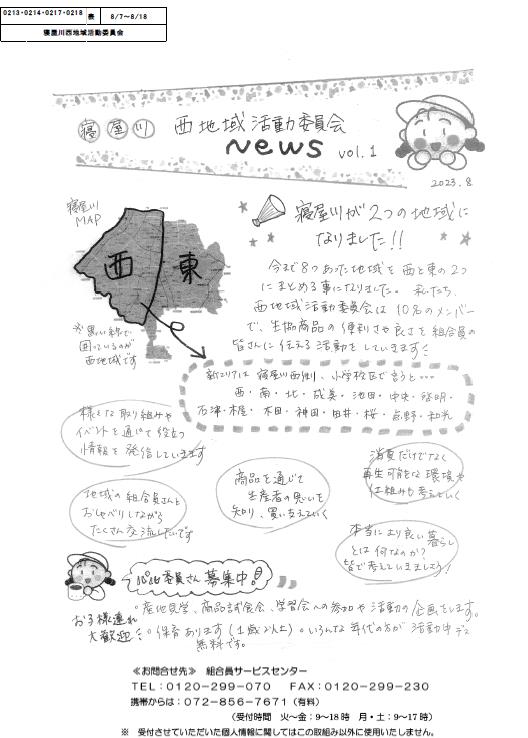 0213・0214・0217・0218 表 8/7～8/18
寝屋川西地域活動委員会
寝屋川 西地域活動委員会
News vol.1
2023.8
寝屋川MAP
西 東
※黒い線で
囲っているのが
西地域です
寝屋川が2つの地域に
なりました!!
今まで8つあった地域を西と東の2つ
にまとめる事になりました。私たち、
西地域活動委員会は10名のメンバー
で、生協商品の便利さや良さを組合員の
皆さんに伝える活動をしていきます
新エリアは寝屋川西側、小学校区で言うと…
西・南・北・成美・池田・中央・啓明・
石津・木屋・木田・神田・田井・桜・点野・和光
様々な取り組みや
イベントを通じて役立つ
情報を発信していきます
地域の組合員さんと
おしゃべりしながら
たくさん交流したいです
商品を通じて
生産者の思いを
知り、買い支えていく
消費だけでなく
再生可能な環境や
仕組みも考えていく
本当により良い暮らし
とは何なのか?
皆で考えていきましょう!
パル委員さん募集中!
お子様連れ
大歓迎
。産地見学、商品試食会、学習会への参加や活動の企画をします。
。保育あります(1歳以上)。いろんな年代の方が活動中です
無料です。
≪お問合せ先≫ 組合員サービスセンター
TEL：0120-299-070 FAX：0120-299-230
携帯からは：072-856-7671（有料）
（受付時間 火～金：9～18時 月・土：9～17時）
※ 受付させていただいた個人情報に関してはこの取組み以外に使用いたしません。